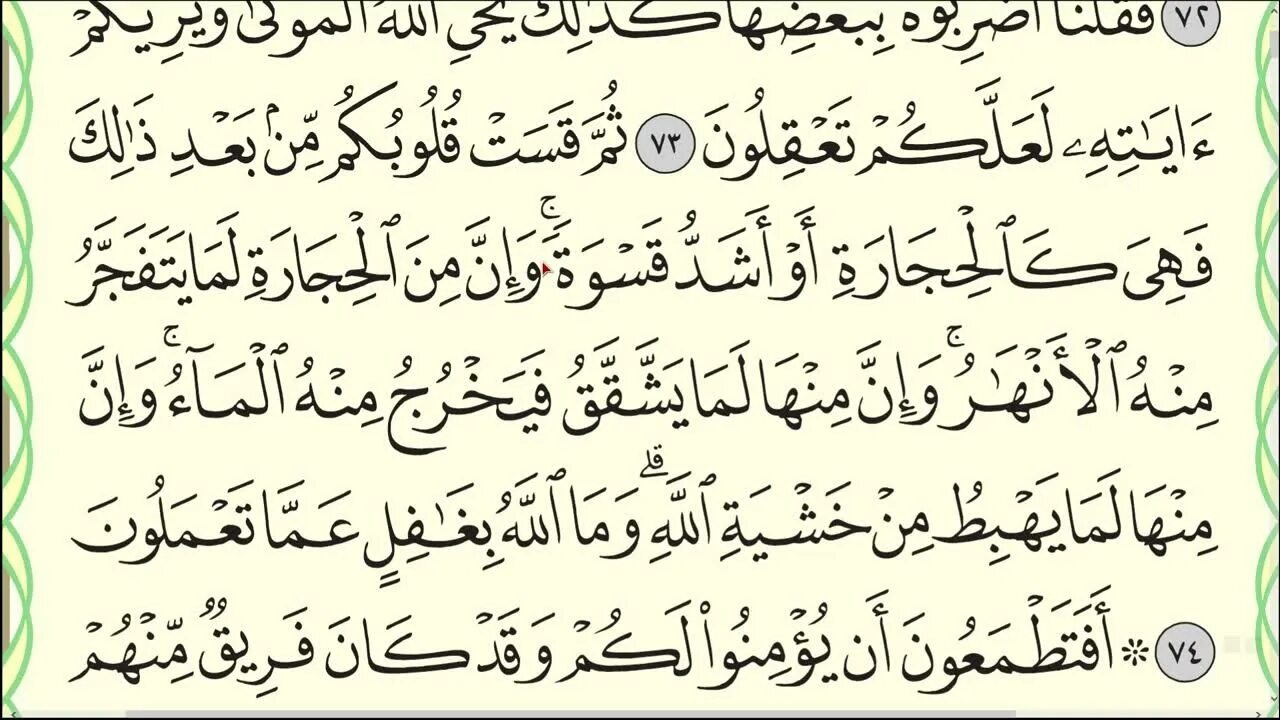 ٧٢ فَقُلْنَا ٱضْرِبُوهُ بِبَعْضِهَا كَذَٰلِكَ يُحْىِ ٱللَّهُ ٱلْمَوْتَىٰ وَيُرِيكُمْ
ءَايَـٰتِهِۦ لَعَلَّكُمْ تَعْقِلُونَ ٧٣ ثُمَّ قَسَتْ قُلُوبُكُم مِّنۢ بَعْدِ ذَٰلِكَ
فَهِىَ كَٱلْحِجَارَةِ أَوْ أَشَدُّ قَسْوَةً ۚ وَإِنَّ مِنَ ٱلْحِجَارَةِ لَمَا يَتَفَجَّرُ
مِنْهُ ٱلْأَنْهَـٰرُ ۚ وَإِنَّ مِنْهَا لَمَا يَشَّقَّقُ فَيَخْرُجُ مِنْهُ ٱلْمَآءُ ۚ وَإِنَّ
مِنْهَا لَمَا يَهْبِطُ مِنْ خَشْيَةِ ٱللَّهِ ۗ وَمَا ٱللَّهُ بِغَـٰفِلٍ عَمَّا تَعْمَلُونَ
٧٤ ۞ أَفَتَطْمَعُونَ أَن يُؤْمِنُوا۟ لَكُمْ وَقَدْ كَانَ فَرِيقٌ مِّنْهُمْ